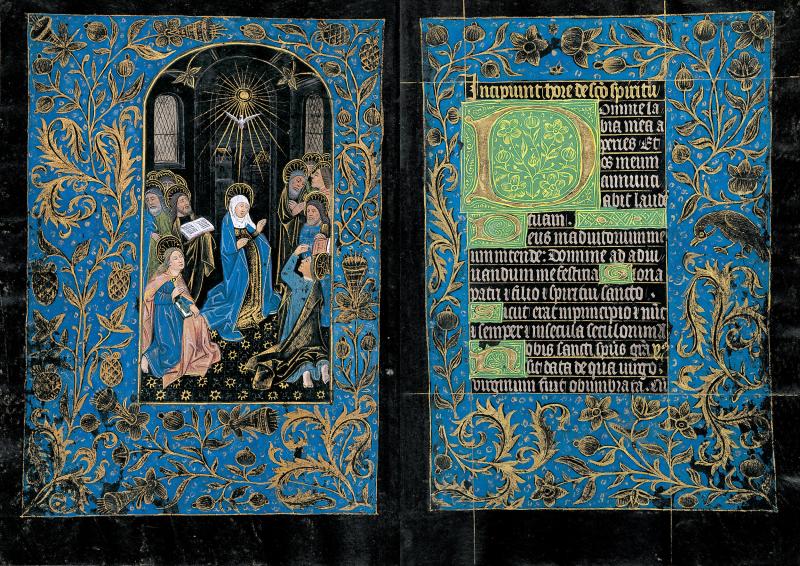 Incipiunt hore de sco spiritu
Domine la
bia mea a
peries Et
os meum
annunti
abit laude
tuam.
Deus in adiutorium me
um intende: Domine ad adiu
uandum me festina Gloria
patri et filio et spiritui sancto.
Sicut erat in principio et nuc
et semper et in secula seculorum A
Nobis sancti spus gra
sit data de qua uirgo
uirginum fuit obumbrata. Cu